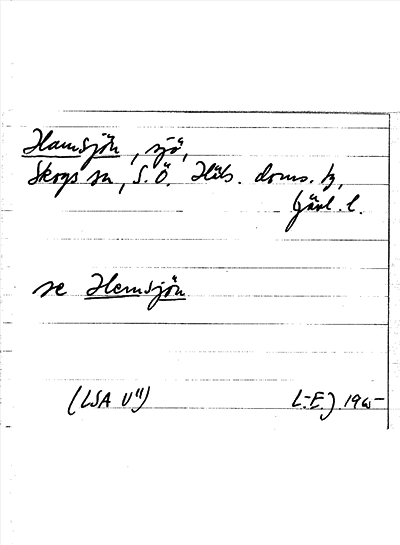 Hamsjön, sjö,
Skogs sn, S.Ö. Häls. doms. tg,
Gävl. l.
se Hemsjön
(LSA U") L-E.J. 196-